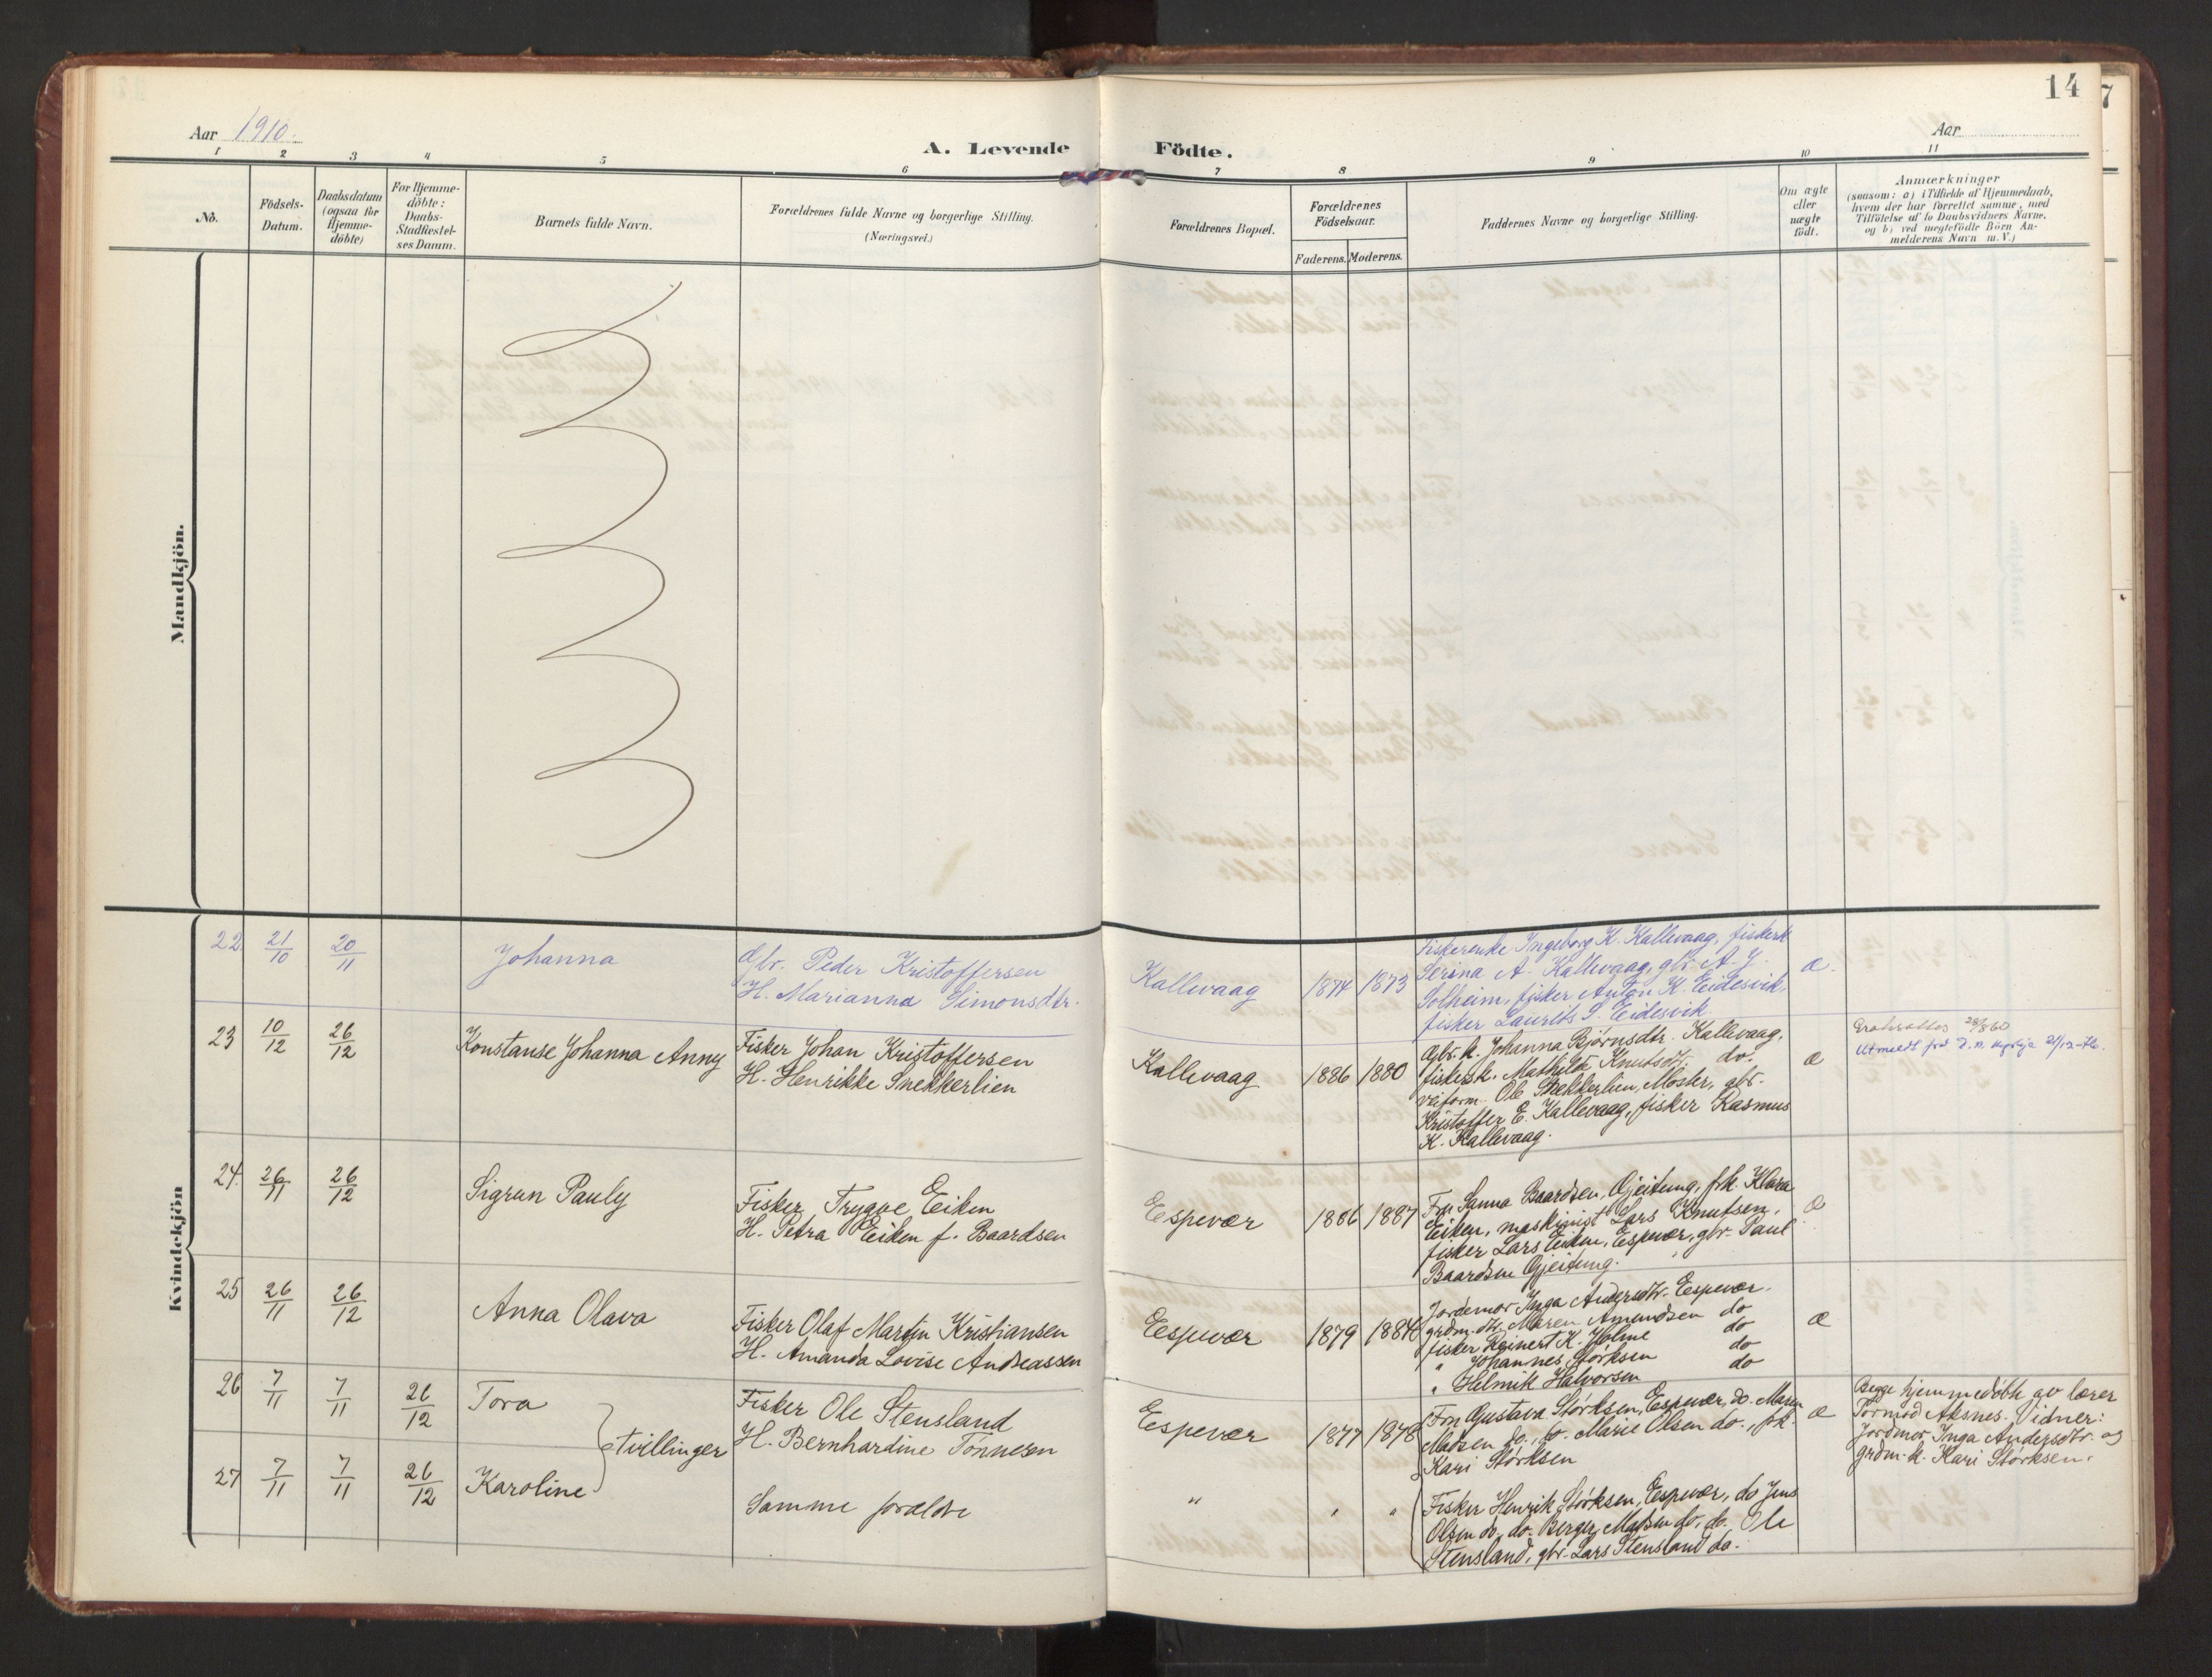 14
Aar 1910.
A. Levende Födte.
Aar
1 2 3 4 5 6 7 8 9 10 11
No.
Födsels-
Datum.
Daabsdatum
(ogsaa for
Hjemme-
döbte)
For Hjemme-
döbte:
Daabs-
Stadfæstel-
ses Datum.
Barnets fulde Navn.
Forældrenes fulde Navne og borgerlige Stilling.
(Næringsvei.)
Forældrenes Bopæl.
Forældrenes
Födselsaar.
Faderens. Moderens.
Faddernes Navne og borgerlige Stilling.
Om ægte
eller
uægte
födt.
Anmærkninger
(saasom: a) i Tilfælde af Hjemmedaab,
hvem der har forrettet samme, med
Tilföielse af to Daabsvidners Navne,
og b) ved uægtefödte Börn An-
melderens Navn m.V.)
Mandkjön.
Kvindekjön
22 21/10 20/11 Johanna
Gbr. Peder Kristoffersen
H. Marianna Simonsdtr.
Kallevaag 1874 1873
Fiskerenke Ingeborg K. Kallevaag, fiskerk
Serina A. Kallevaag, gbr. A. J.
Solheim, fisker Anton K. Eidesvik,
fisker Laurits S. Eidesvik.
æ.
23 10/12 26/12 Konstanse Johanna Anny
Fisker Johan Kristoffersen
H. Henrikke Snekkerlien
Kallevaag 1886 1880
Gbr. k. Johanna Bjørnsdtr. Kallevaag,
fiskerk. Mathilde Knutsdtr. do.
veiform. Ole Snekkerlien, Moster, gbr.
Kristoffer E. Kallevaag, fisker Rasmus
K. Kallevaag.
æ
28/8 60
Utmeldt frå D. n. kyrkja 21/12-76.
24. 26/11 26/12 Sigrun Pauly
Fisker Trygve Eiken
H. Petra Eiken f. Baardsen
Espevær 1886 1887
Fru Sanna Baardsen, Gjeitung, frk. Klara
Eiken, maskinist Lars Knutsen,
fisker Lars Eiken, Espevær, gbr. Paul
Baardsen Gjeitung.
æ
25 26/11 26/12 Anna Olava
Fisker Olaf Martin Kristiansen
H. Amanda Lovise Andreassen
Espevær 1879 1884
Jordemor Inga Andersdtr. Espevær.
grdm. dtr. Maren Amundsen do
fisker Reinert K. Holme do
" Johannes Størksen do
" Helmik Halvorsen do
æ
26 7/11 7/11 26/12 Tora
tvillinger
Fisker Ole Stensland
H. Bernhardine Tönnesen
Espevær 1877 1878
Fru Gustava Størksen, Espevær, do. Maren
Madsen do., do. Marie Olsen do., frk.
Kari Størksen
æ
Begge hjemmedöbte av lærer
Tormod Aksnes. Vidner:
Jordmor Inga Andersdtr. og
grdm. k. Kari Størksen.
27 7/11 7/11 26/12 Karoline
Samme forældre
" " "
Fisker Henrik Størksen, Espevær, do Jens
Olsen do, do. Berger Madsen do, do. Ole
Stensland, gbr. Lars Stensland do.